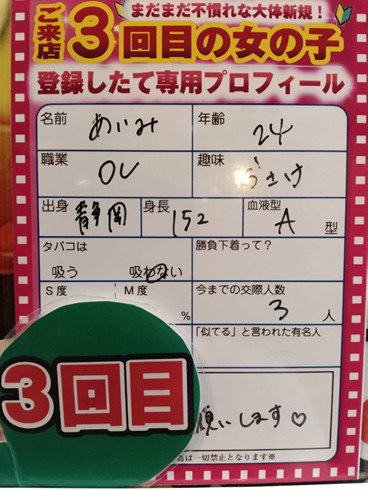 まだまだ不慣れな大体新規!
ご来店
3回目の女の子
登録したて専用プロフィール
名前 あいみ 年齢 24
職業 OL 趣味 おさけ
出身 静岡 身長 152 血液型 A 型
タバコは 勝負下着って?
吸う 吸わない
S度 M度 今までの交際人数
% 3 人
「似てる」と言われた有名人
3回目
願いします♡
為は一切禁止となります※